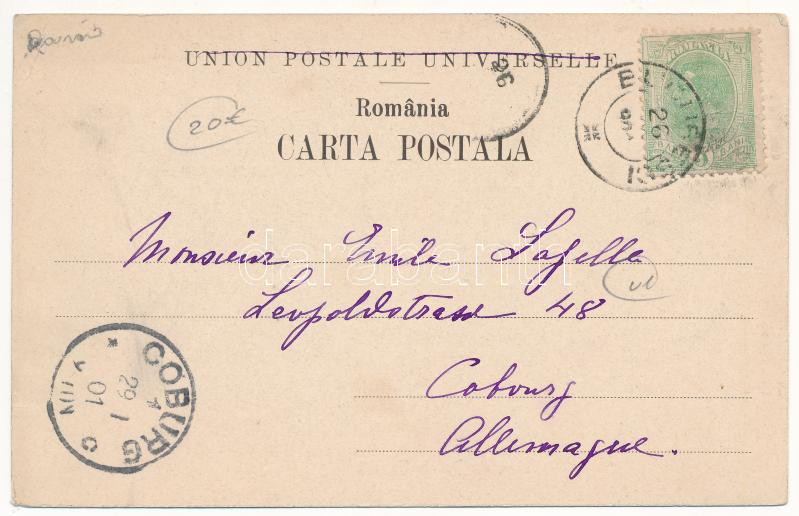 UNION POSTALE UNIVERSELLE
România
CARTA POSTALA
20€
26
26
Monsieur Emile Lafelle
Leopoldstrasse 48
Cobourg
Allemagne.
COBURG
29 1
01
darabanth